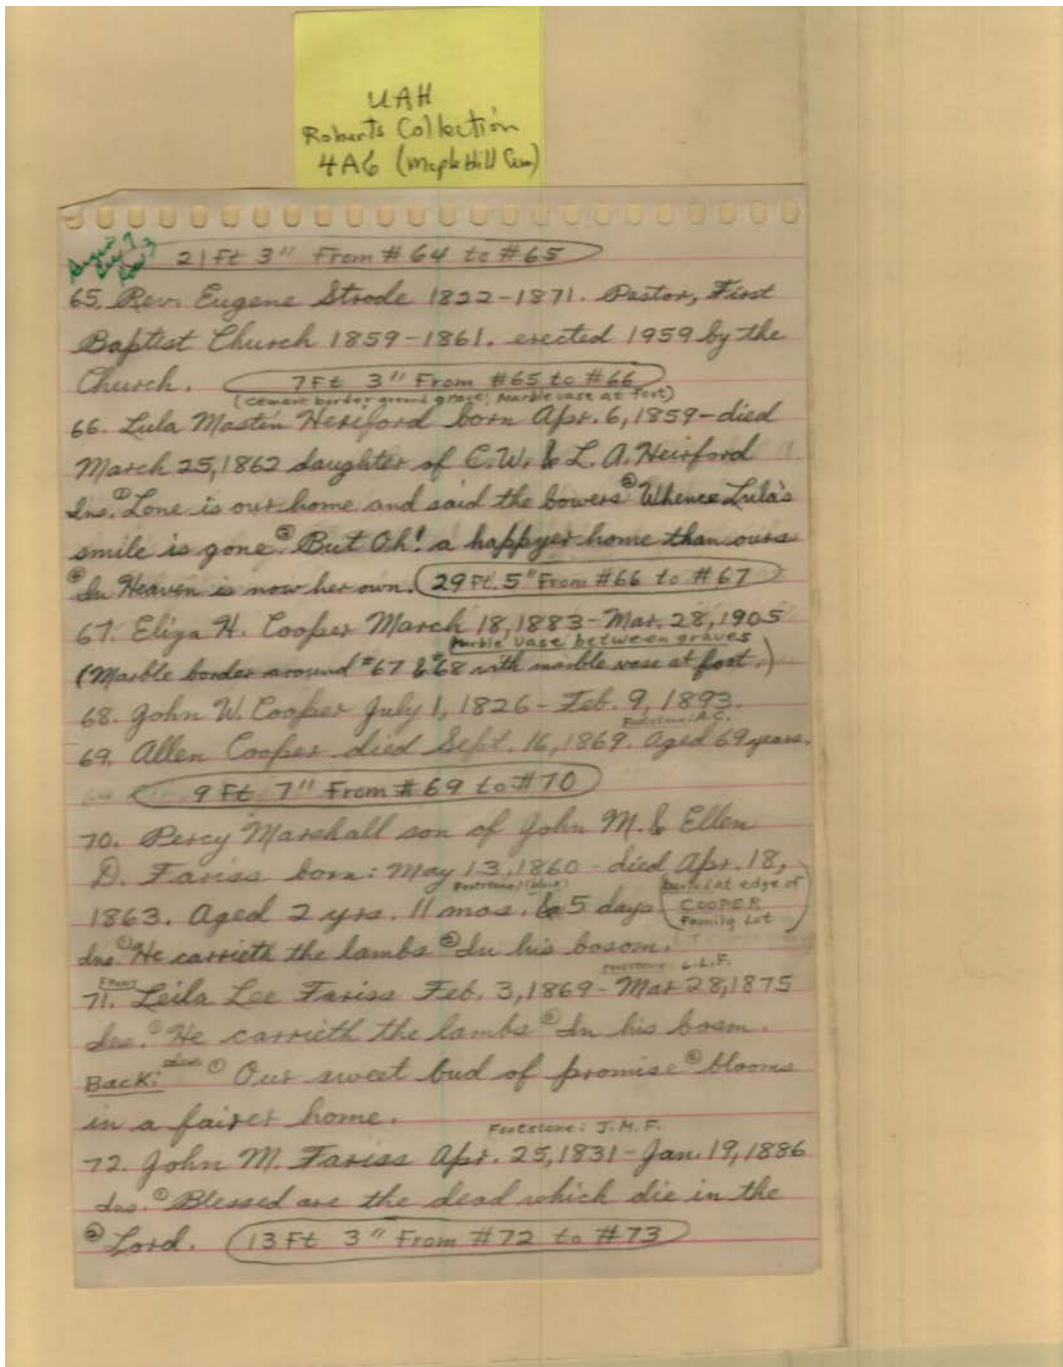 UAH
Roberts Collection
4A6 (Maple Hill Cem)
21 Ft 3" From #64 to #65
65. Rev. Eugene Strode 1822-1871. Pastor, First
Baptist Church 1859-1861. erected 1959 by the
Church. 7 Ft 3" From #65 to #66
(Cement border around grave, Marble vase at foot)
66. Lula Mastin Heriford born Apr. 6, 1859-died
March 25, 1862 daughter of C.W. & L.A. Heirford
Ins. ① Lone is our home and said the bowers ② Whence Lula's
smile is gone ③ But Oh! a happyer home than ours
④ In Heaven is now her own. 29 Ft. 5" From #66 to #67
67. Eliza H. Cooper March 18, 1883-Mar. 28, 1905
Marble vase between graves
(Marble border around #67 & #68 with marble vase at foot.)
68. John W. Cooper July 1, 1826-Feb. 9, 1893.
Footstone: A.C.
69. Allen Cooper died Sept. 16, 1869. Aged 69 years.
9 Ft 7" From #69 to #70
70. Percy Marshall son of John M. & Ellen
D. Fariss born: May 13, 1860-died Apr. 18,
Footstone: (blank)
1863. Aged 2 yrs. 11 mos. & 5 days (buried at edge of
COOPER
Family Lot)
Ins. ① He carrieth the lambs ② In his bosom.
Front Footstone: L.L.F.
71. Leila Lee Fariss Feb. 3, 1869-Mar 28, 1875
Ins. ① He carrieth the lambs ② In his bosm.
Back: Ins. ① Our sweet bud of promise ② blooms
in a fairer home.
Footstone: J.M.F.
72. John M. Fariss Apr. 25, 1831-Jan. 19, 1886
Ins. ① Blessed are the dead which die in the
② Lord. 13 Ft 3" From #72 to #73